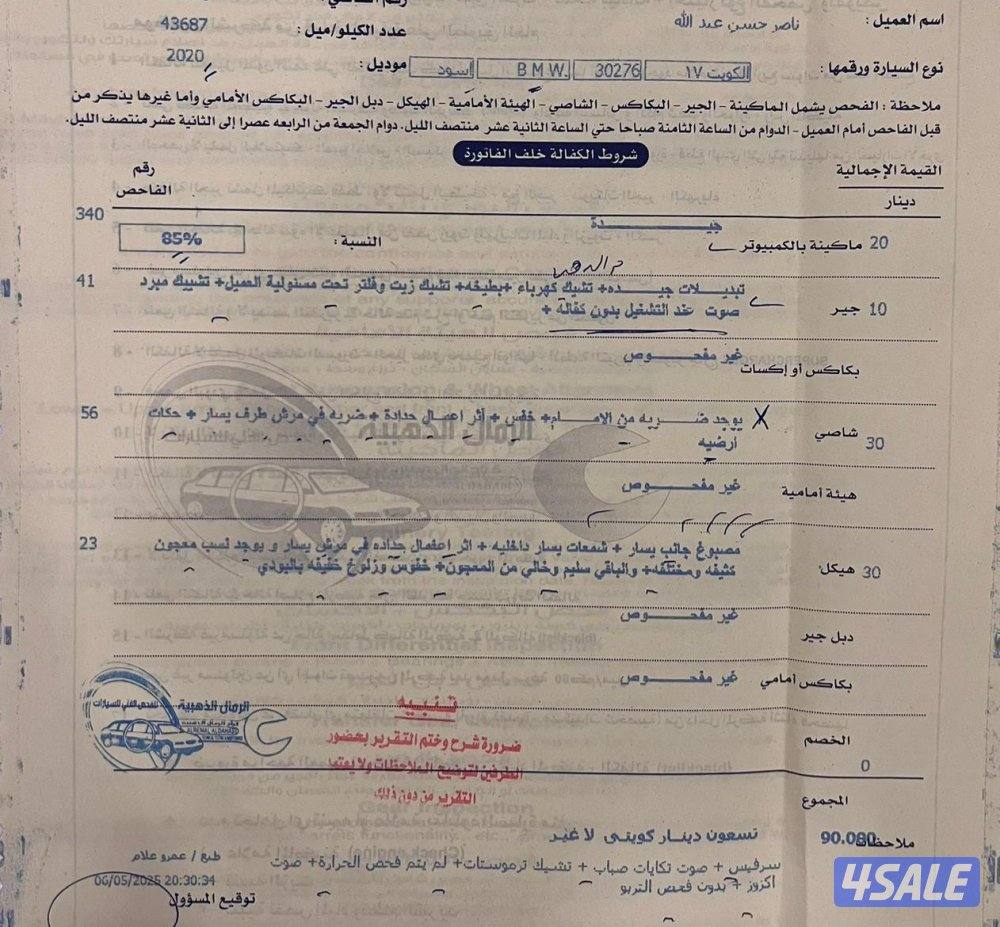 اسم العميل : ناصر حسن عبد الله
عدد الكيلو/ميل : 43687
نوع السيارة ورقمها : الكويت ١٧ 30276 B M W. اسود موديل : 2020
ملاحظة : الفحص يشمل الماكينة - الجير - البكاكس - الشاصي - الهيئة الأمامية - الهيكل - دبل الجير - البكاكس الأمامي وأما غيرها يذكر من
قبل الفاحص أمام العميل - الدوام من الساعة الثامنة صباحا حتي الساعة الثانية عشر منتصف الليل. دوام الجمعة من الرابعه عصرا إلى الثانية عشر منتصف الليل.
شروط الكفالة خلف الفاتورة
القيمة الإجمالية
دينار
رقم
الفاحص
جيدة
340
20 ماكينة بالكمبيوتر
النسبة : 85%
م الدهن
تبديلات جيده+ تشيك كهرباء +بطيخه+ تشيك زيت وفلتر تحت مسئولية العميل+ تشييك مبرد
41
10 جير
صوت عند التشغيل بدون كفالة +
غير مفحوص
بكاكس أو إكسات
يوجد ضربه من الامام+ خفس + أثر اعمال حدادة + ضربه في مرش طرف يسار + حكات
56
30 شاصي
ارضيه
غير مفحوص
هيئة أمامية
مصبوغ جانب يسار + شمعات يسار داخليه + اثر اعمال حداده في مرش يسار و يوجد نسب معجون
23
30 هيكل
كثيفه ومختلفه+ والباقي سليم وخالي من المعجون+ خفوس وزلوخ خفيفه بالبودي
غير مفحوص
دبل جير
غير مفحوص
بكاكس أمامي
الرمال الذهبية
للفحص الفني للسيارات
تنبيه
ضرورة شرح وختم التقرير بحضور
الطرفين لتوضيح الملاحظات ولا يعتمد
التقرير من دون ذلك
الخصم
0
المجموع
90.000 تسعون دينار كويتى لا غير
ملاحظات
سرفيس + صوت تكايات صباب + تشيك ترموستات+ لم يتم فحص الحرارة+ صوت
اكزوز + بدون فحص التربو
طبع / عمرو علام
06/05/2025 20:30:34
توقيع المسؤول
4SALE